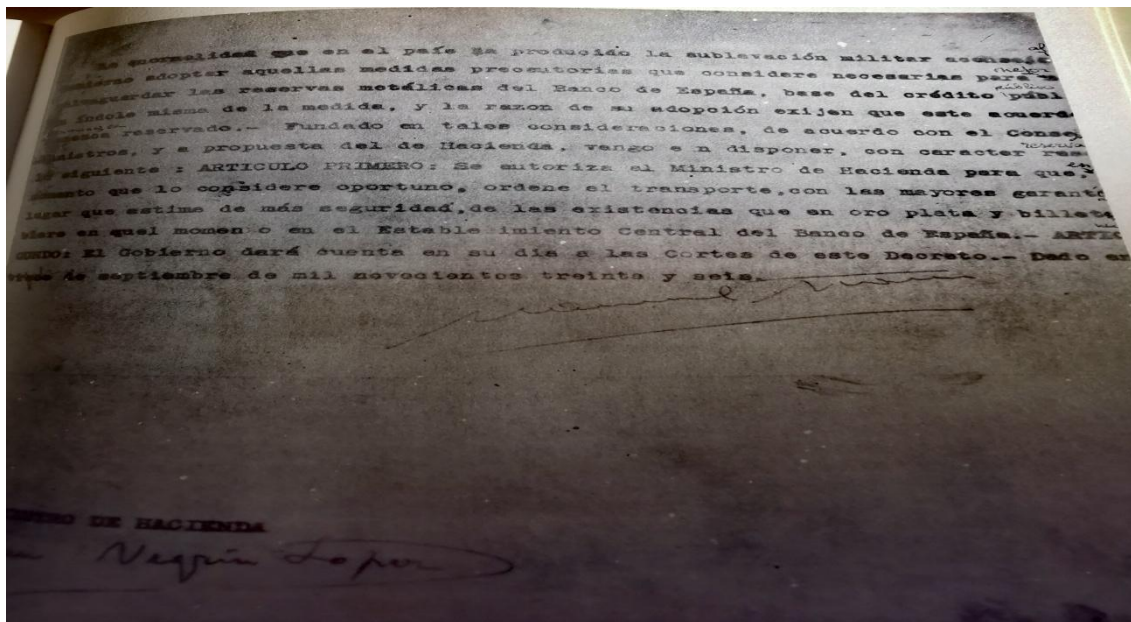 la anormalidad que en el país ha producido la sublevación militar aconseja al
adoptar aquellas medidas precautorias que considere necesarias para mejor
las reservas metálicas del Banco de España, base del crédito públ público
índole misma de la medida, y la razon de su adopción exijen que este acuerdo
reservado.- Fundado en tales consideraciones, de acuerdo con el Conse
nistros, y a propuesta del de Hacienda, vengo e n disponer, con caracter res reserva
siguiente : ARTICULO PRIMERO: Se autoriza al Ministro de Hacienda para que, en
mento que lo considere oportuno, ordene el transporte,con las mayores garant
lugar que estime de más seguridad,de las existencias que en oro plata y billete
biere en quel momen o en el Estable imiento Central del Banco de España.- ARTIC
GUNDO: El Gobierno dará cuenta en su dia a las Cortes de este Decreto.- Dado en
de septiembre de mil novecientos treinta y seis.
DE HACIENDA
Negrín Lopez